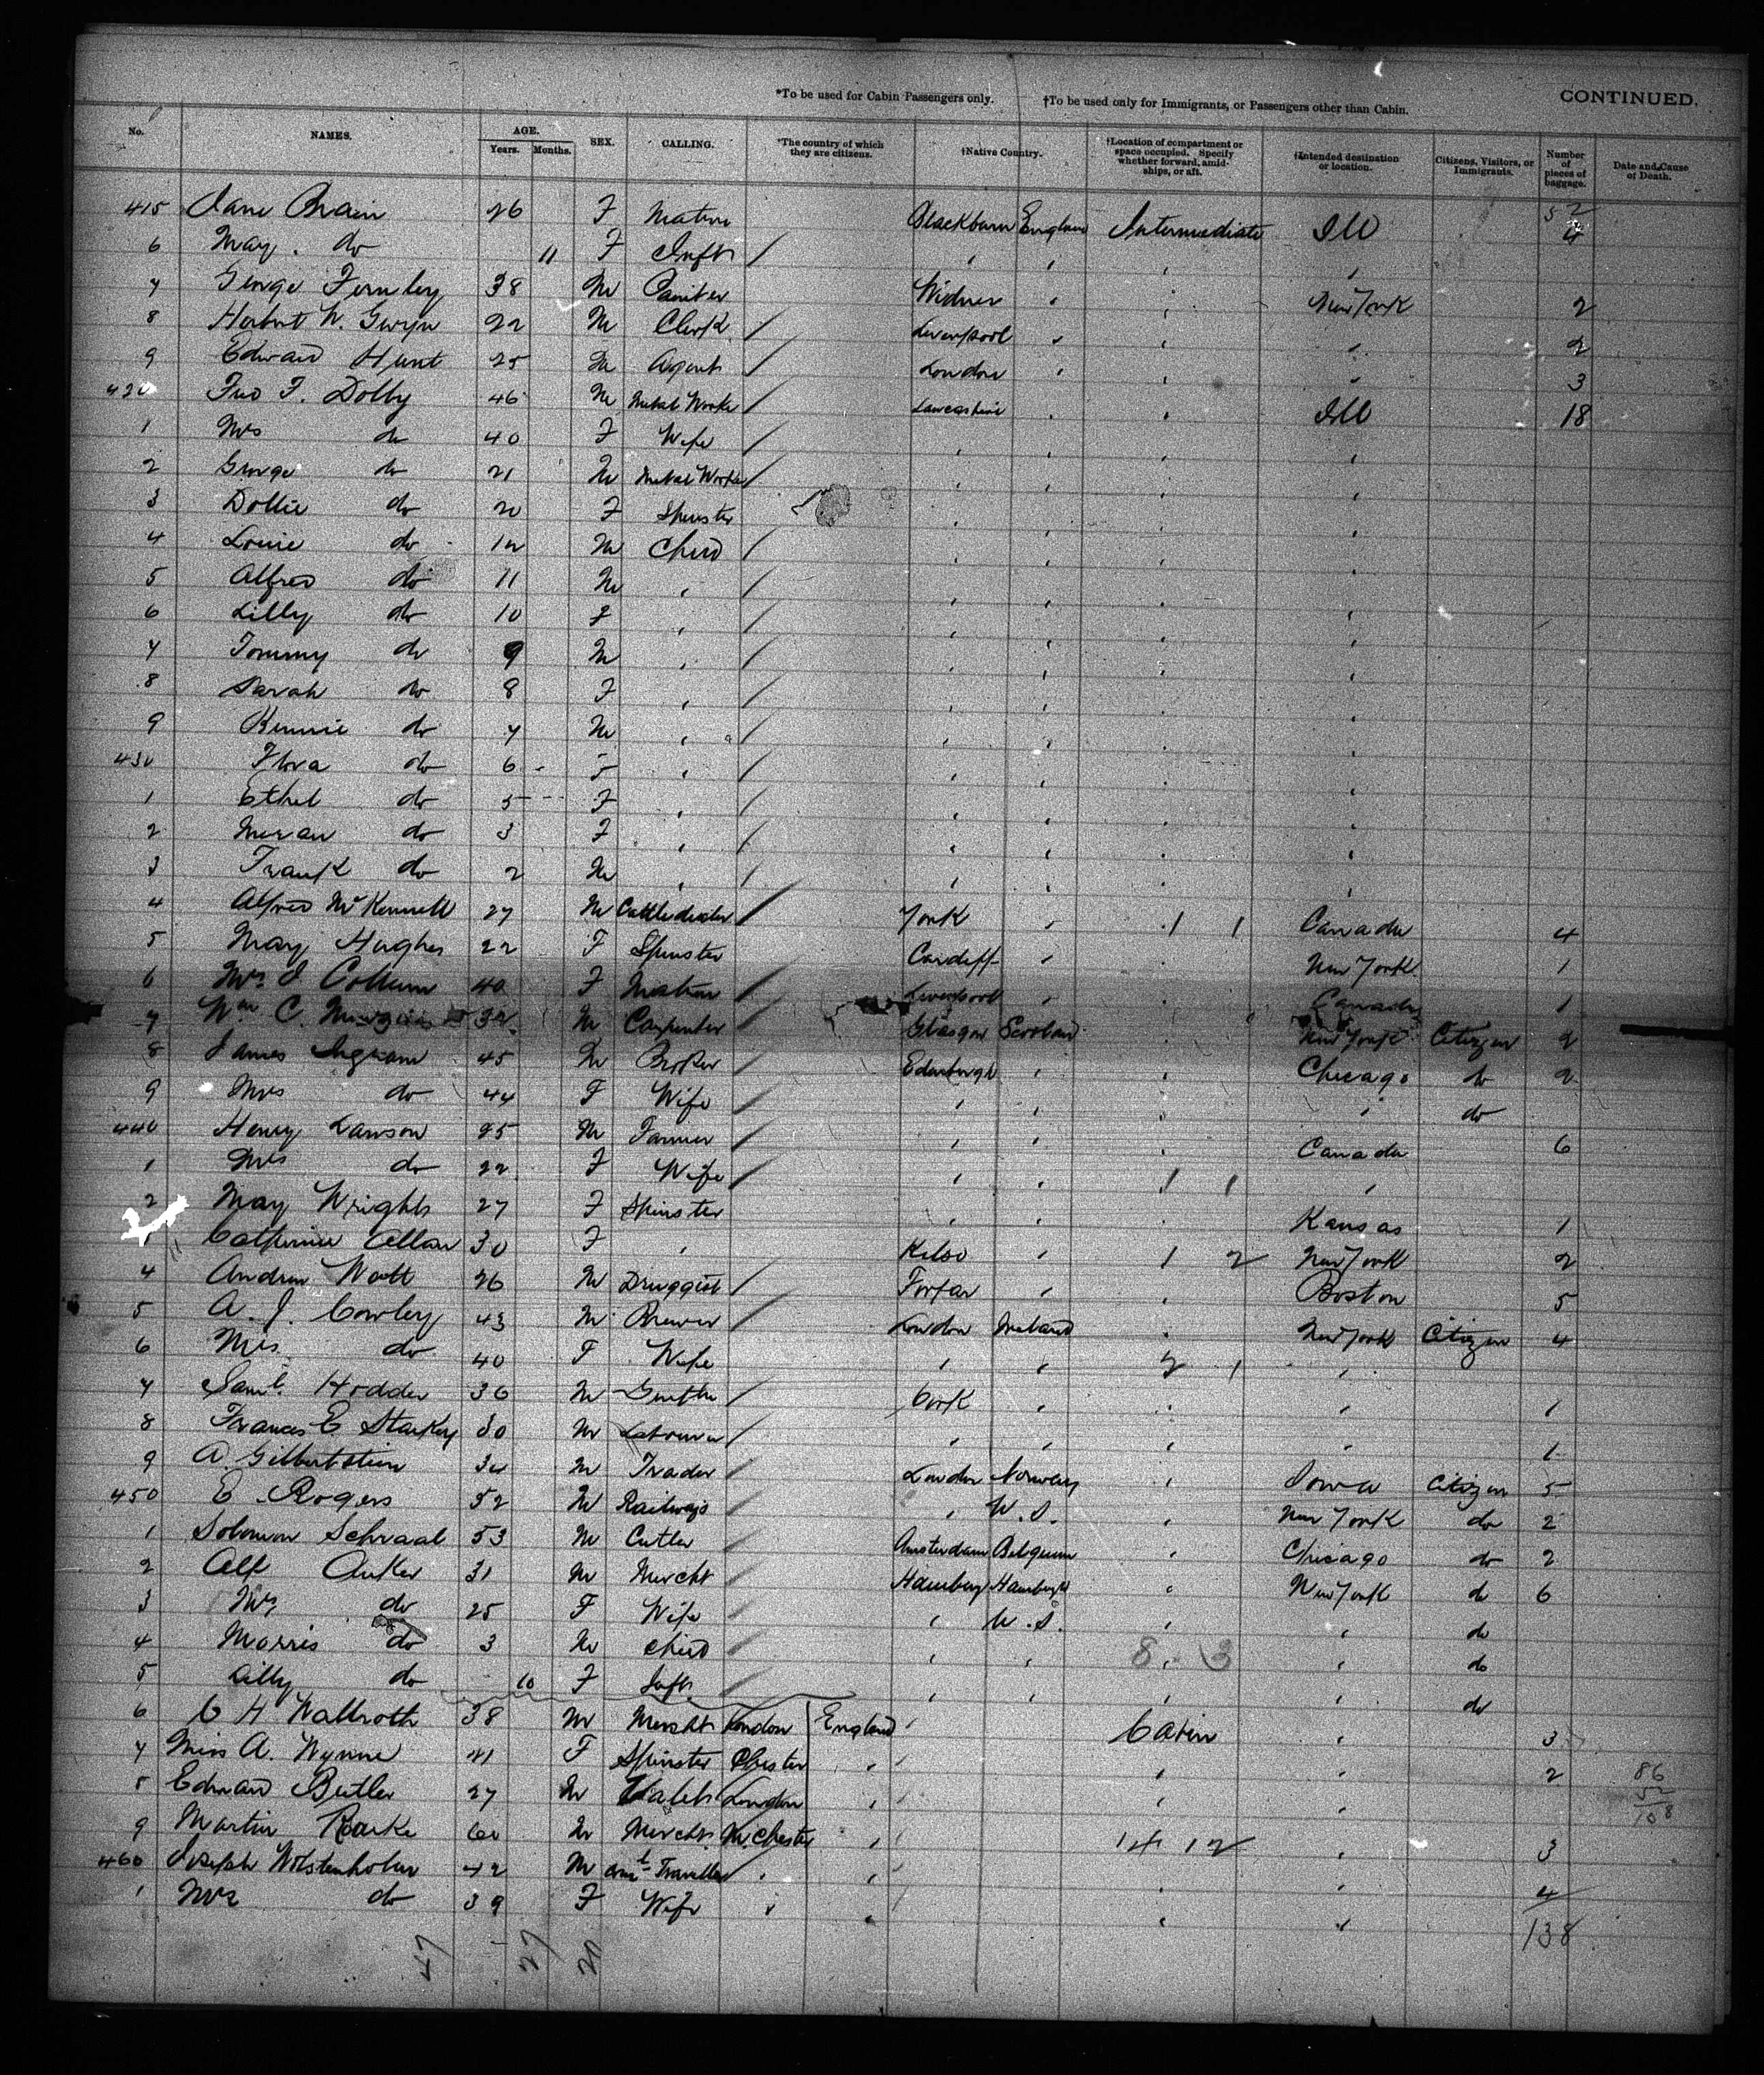 *To be used for Cabin Passengers only. †To be used only for Immigrants, or Passengers other than Cabin. CONTINUED.
No. NAMES. AGE. Years. Months. SEX. CALLING. *The country of which they are citizens. †Native Country. †Location of compartment or space occupied. Specify whether forward, amidships, or aft. †Intended destination or location. Citizens, Visitors, or Immigrants. Number of pieces of baggage. Date and Cause of Death.
52
415 Jane 26 F Matron Blackburn England Intermediate Ill 4
6 May do 11 F Inft
7 George Fernley 38 M Widnes New York 2
8 Herbert W. Gwyn 22 M Clerk Liverpool 2
9 Edward Hunt 25 M Agent London 3
420 Jno F. Dolby 46 M Metal Worker Lancashire Ill 18
1 Mrs do 40 F Wife
2 George do 21 M Metal Worker
3 Dollie do 20 F Spinster
4 Louie do 12 M Child
5 Alfred do 11 M
6 Lilly do 10 F
7 Tommy do 9 M
8 Sarah do 8 F
9 do 7 M
430 Flora do 6 F
1 Ethel do 5 F
2 do 3 F
3 Frank do 2 M
4 Alfred McKennell 27 M Cattle dealer York 1 1 Canada 4
5 May Hughes 22 F Spinster Cardiff New York 1
6 Mrs J 40 F Matron Liverpool Canada 1
7 Wm C. M Carpenter Glasgow Scotland New York Citizen 2
8 James Ingram 45 M Broker Edenburgh Chicago do 2
9 Mrs do 44 F Wife do
440 Henry Lawson 25 M Farmer Canada 6
1 Mrs do 22 F Wife 1 1
2 May Wright 27 F Spinster Kansas 1
Catherine Allan 30 F Kelso 1 2 New York 2
4 Andrew Watt 26 M Druggist Forfar Boston 5
5 A. J. Cowley 43 M Brewer London Ireland New York Citizen 4
6 Mrs do 40 F Wife 7 1
7 Saml. Hodder 36 M Cork 1
8 Frances E Starkey 30 M Labourer 1
9 A. Gilbertstein M Trader London Norway Iowa Citizen 5
450 E Rogers 52 M Railways U.S. New York do 2
1 Solomon Schraal 53 M Cutler Amsterdam Belgium Chicago do 2
2 Alf Anker 31 M Mercht Hamburg Hamburgh New York do 6
3 Mrs do 25 F Wife U.S. do
4 Morris do 3 M Child 8 3 do
5 Lilly do 10 F Inft do
6 C H Wallroth 38 M Mercht London England Cabin 3
7 Miss A. Wynne 21 F Spinster Chester 2 86
8 Edward Butler 27 M Valet London 52
9 Martin Roarke 60 M Mercht M.Chester 14 12 3 108
460 Joseph Wolstenholm 42 M Traveller 4
1 Mrs do 39 F Wife
138
47 27 20